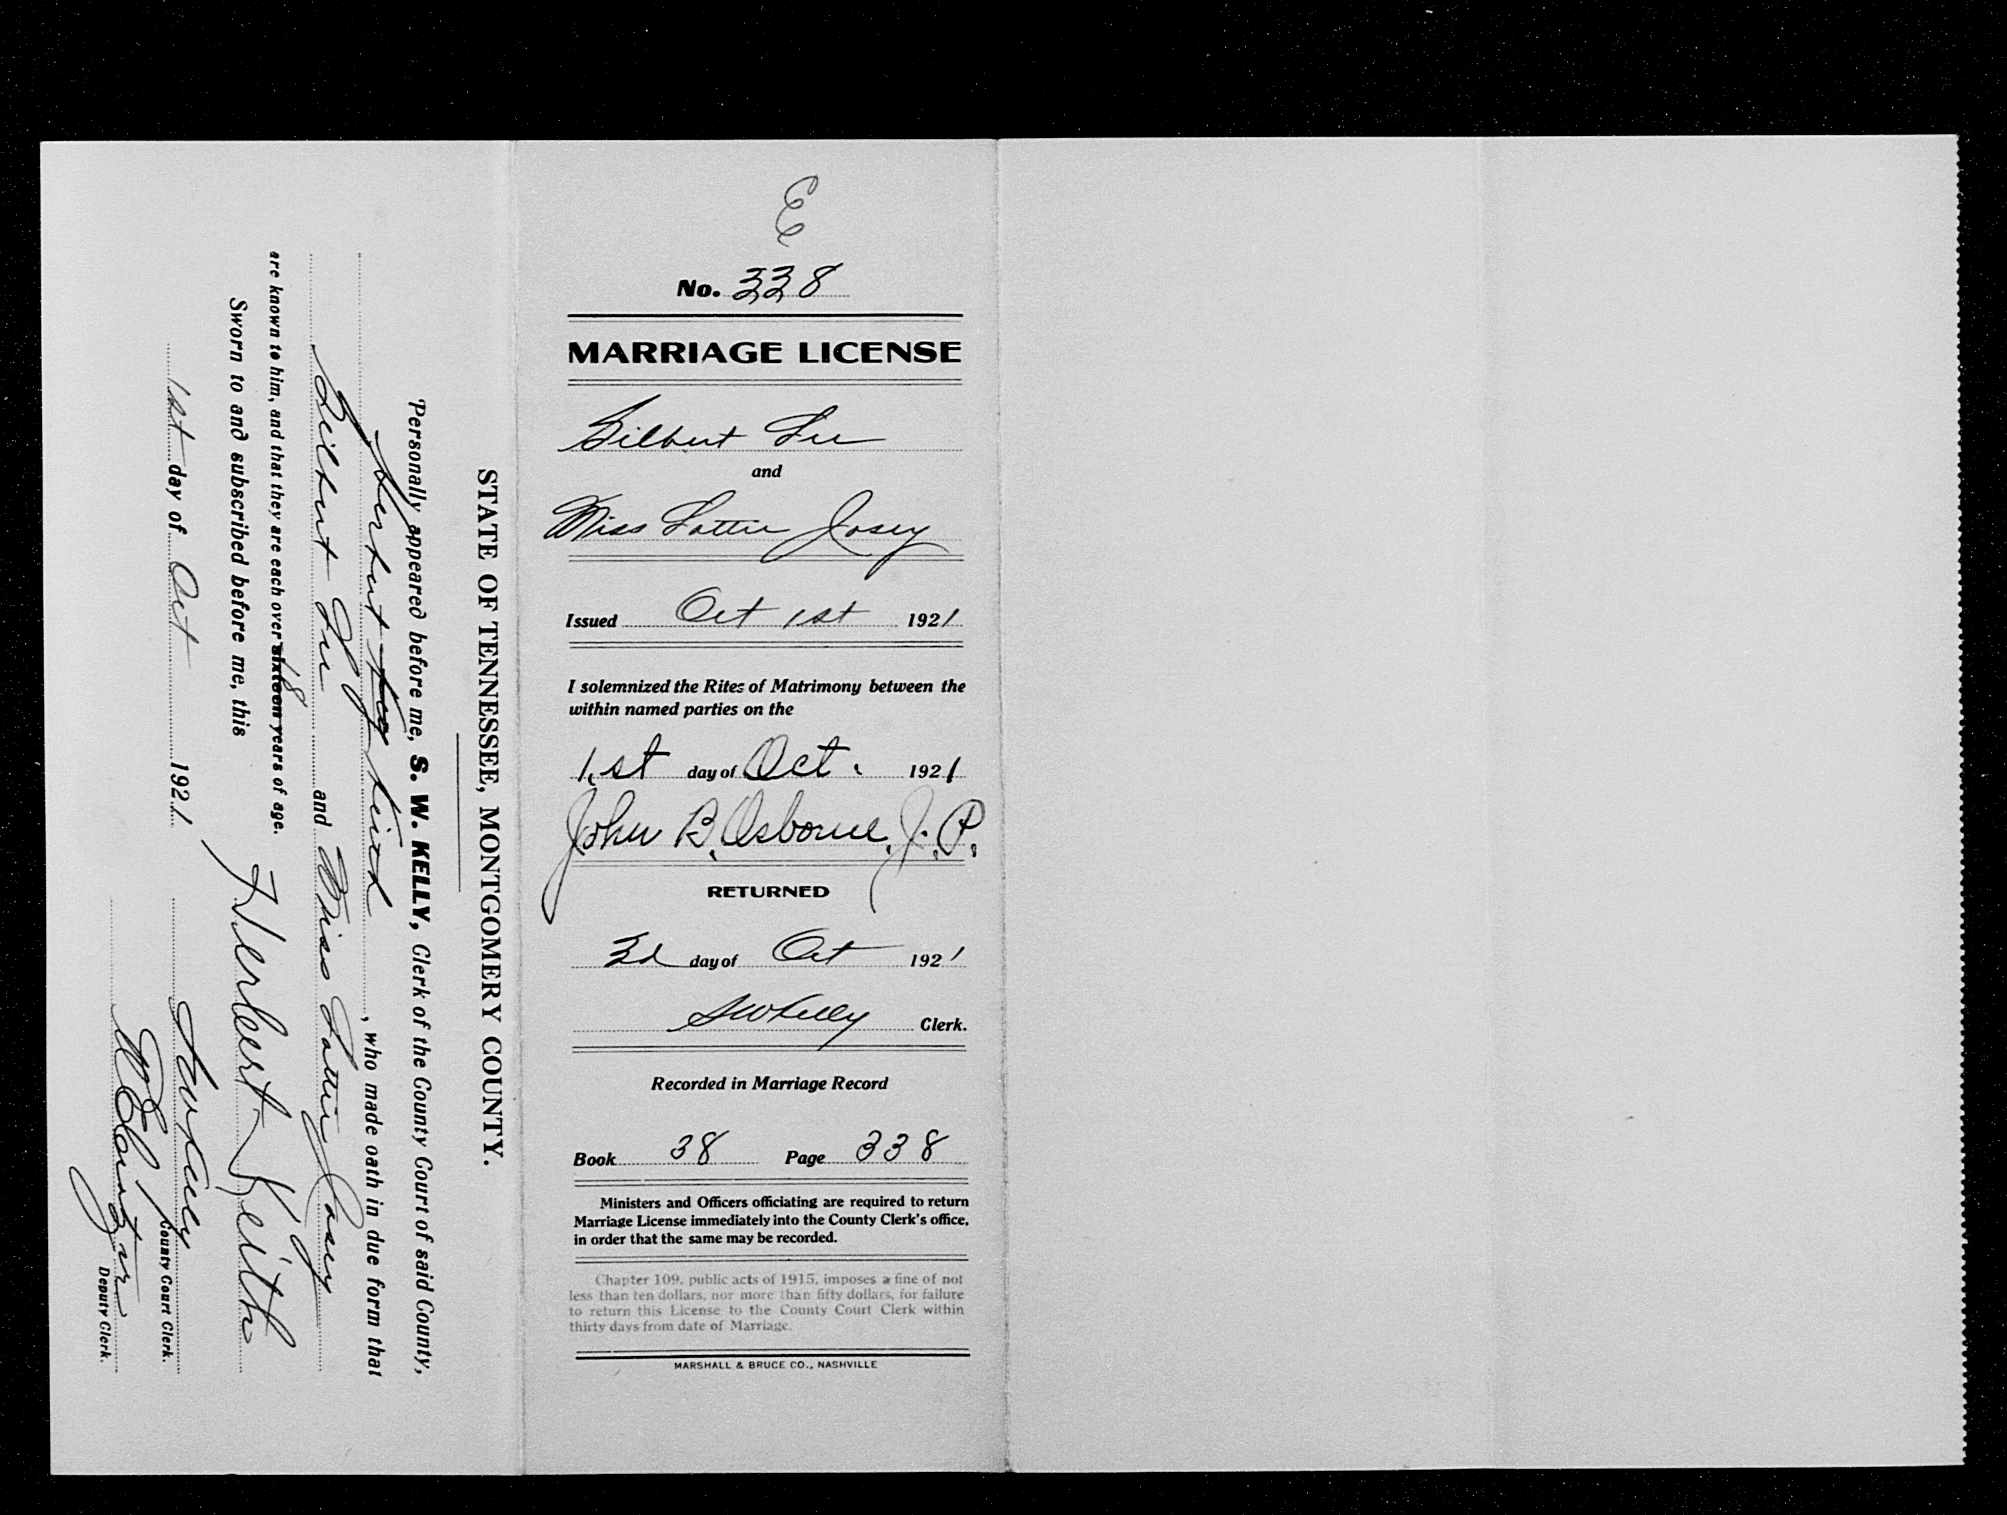 E
No. 338
MARRIAGE LICENSE
Gilbert Lee
and
Miss Lottie Josey
Issued Oct 1st 1921
I solemnized the Rites of Matrimony between the
within named parties on the
1st day of Oct. 1921
John B. Osborne, J. P.
RETURNED
3d day of Oct 1921
SWKelly Clerk.
Recorded in Marriage Record
Book 38 Page 338
Ministers and Officers officiating are required to return
Marriage License immediately into the County Clerk's office,
in order that the same may be recorded.
Chapter 109, public acts of 1915, imposes a fine of not
less than ten dollars, nor more than fifty dollars, for failure
to return this License to the County Court Clerk within
thirty days from date of Marriage.
MARSHALL & BRUCE CO., NASHVILLE
STATE OF TENNESSEE, MONTGOMERY COUNTY.
Personally appeared before me, S. W. KELLY, Clerk of the County Court of said County,
Herbert Keith, who made oath in due form that
Gilbert Lee and Miss Lottie Josey
are known to him, and that they are each over sixteen 18 years of age.
Sworn to and subscribed before me, this
1st day of Oct 1921
Herbert Keith
SWKelly County Court Clerk.
Deputy Clerk.